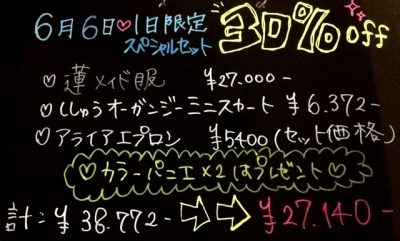 6月6日♡1日限定
スペシャルセット
30%off
♡蓮メイド服 ¥27.000-
♡ししゅうオーガンジーミニスカート ¥6.372-
♡アライアエプロン ¥5400(セット価格)
♡カラーパニエ×2はプレゼント♡
計:¥38.772-⇨⇨¥27.140-